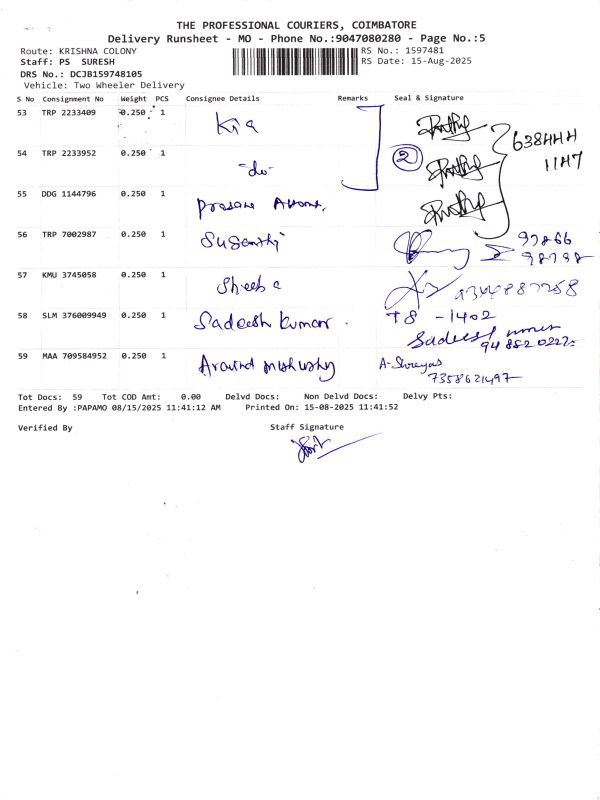 THE PROFESSIONAL COURIERS, COIMBATORE
Delivery Runsheet - MO - Phone No.:9047080280 - Page No.:5
Route: KRISHNA COLONY RS No.: 1597481
Staff: PS SURESH RS Date: 15-Aug-2025
DRS No.: DCJB159748105
Vehicle: Two Wheeler Delivery
S No Consignment No Weight PCS Consignee Details Remarks Seal & Signature
53 TRP 2233409 0.250 1 Kia
54 TRP 2233952 0.250 1 -do- 2
55 DDG 1144796 0.250 1
56 TRP 7002987 0.250 1 97866
98798
57 KMU 3745058 0.250 1 Sheeba
58 SLM 376009949 0.250 1 Sadeesh Kumar T8 - 1402
59 MAA 709584952 0.250 1 Aravind A-Shreyas
7358621497
Tot Docs: 59 Tot COD Amt: 0.00 Delvd Docs: Non Delvd Docs: Delvy Pts:
Entered By :PAPAMO 08/15/2025 11:41:12 AM Printed On: 15-08-2025 11:41:52
Verified By Staff Signature